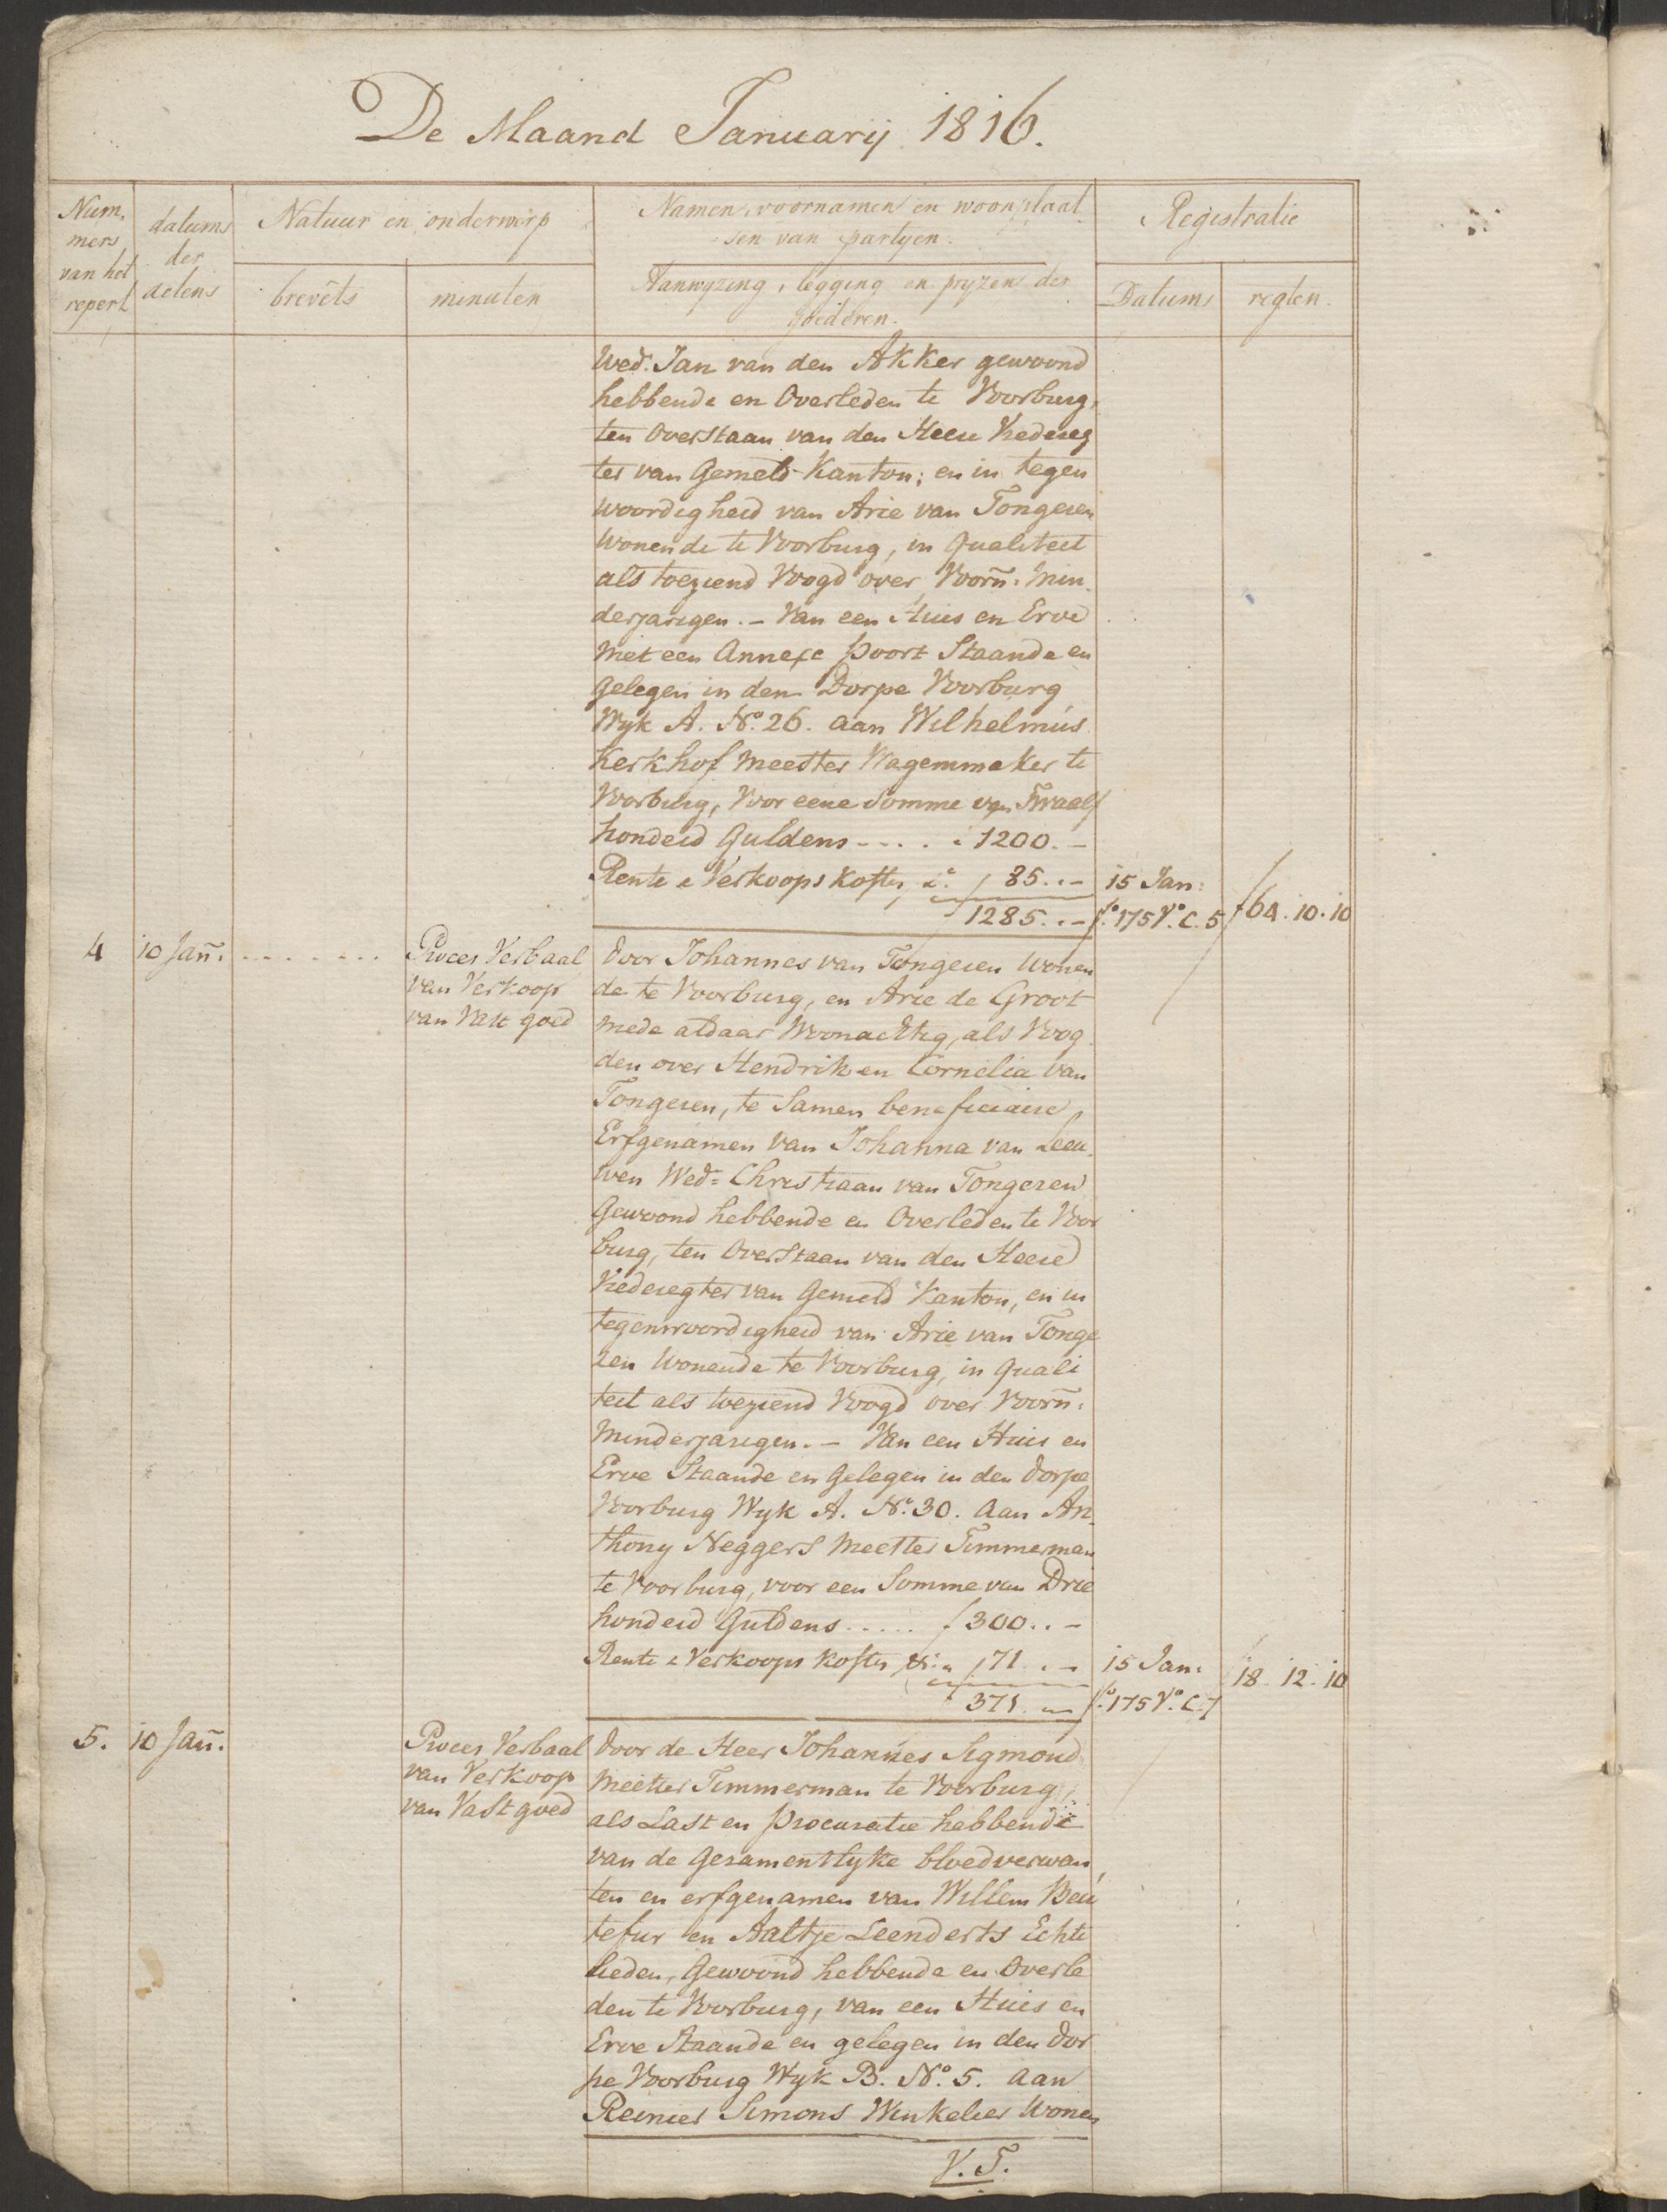 De Maand Januarij 1816.
Num,
mers
van het
repert
datums
der
delens
Natuur en onderwerp
brevêts
minuten
Namen, voornamen en woonplaat
sen van partyen.
Aanwyzing, legging en pryzen der
goederen.
Registratie
Datums
regten.
Wed. Jan van den Akker gewoond
hebbende en Overleden te Voorburg,
ten Overstaan van den Heere Vredereg
ter van Gemeld Kanton; en in tegen
woordigheid van Arie van Tongeren
Wonende te Voorburg, in Qualiteit
als toeziend Voogd over Voorn̄: Min
derjarigen. - Van een Huis en Erve
Met een Annexe poort Staande en
Gelegen in den Dorpe Voorburg
Wyk A. No. 26. aan Wilhelmus
Kerkhof Meester Wagenmaker te
Voorburg, Voor eene Somme van Twaalf
honderd Guldens - . . . . 1200. -
Rente & Verkoops Kosten, 85. . - 15 Jan:
1285. . - fo. 175 Vo. C. 5 f 64. 10. 10
4 10 Jan̄. . . . . . . . Proces Verbaal
van Verkoop
van Vast goed
Door Johannes van Tongeren Wonen
de te Voorburg, en Arie de Groot
mede aldaar Woonachtig, als Voog
den over Hendrik en Cornelia van
Tongeren, te Samen beneficiaire
Erfgenamen van Johanna van Leeu
wen Wed= Christiaan van Tongeren
Gewoond hebbende en Overleden te Voor
burg, ten Overstaan van den Heere
Vrederegter van Gemeld Kanton, en in
tegenwoordigheid van Arie van Tonge
ren Wonende te Voorburg, in Quali
teit als toeziend Voogd over Voorn̄:
Minderjarigen. - Van een Huis en
Erve Staande en Gelegen in den Dorpe
Voorburg Wyk A. No. 30. Aan An
thony Neggers Meester Timmerman
te Voorburg, voor een Somme van Drie
honderd Guldens . . . . . f 300. . -
Rente & Verkoops Kosten, 71. . - 15 Jan:
371. - fo. 175 Vo. C. 7 18. 12. 10
5. 10 Jan̄. Proces Verbaal
van Verkoop
van Vast goed
Door de Heer Johannes Sigmond
Meester Timmerman te Voorburg,
als Last en Procuratie hebbende
van de Gezamentlyke bloedverwan
ten en erfgenamen van Willem Beu
tefur en Aaltje Leenderts Echte
lieden, Gewoond hebbende en Overle
den te Voorburg, van een Huis en
Erve Staande en gelegen in den Dor
pe Voorburg Wyk B. No. 5. Aan
Reinier Simons Winkelier Wonen
V. T.